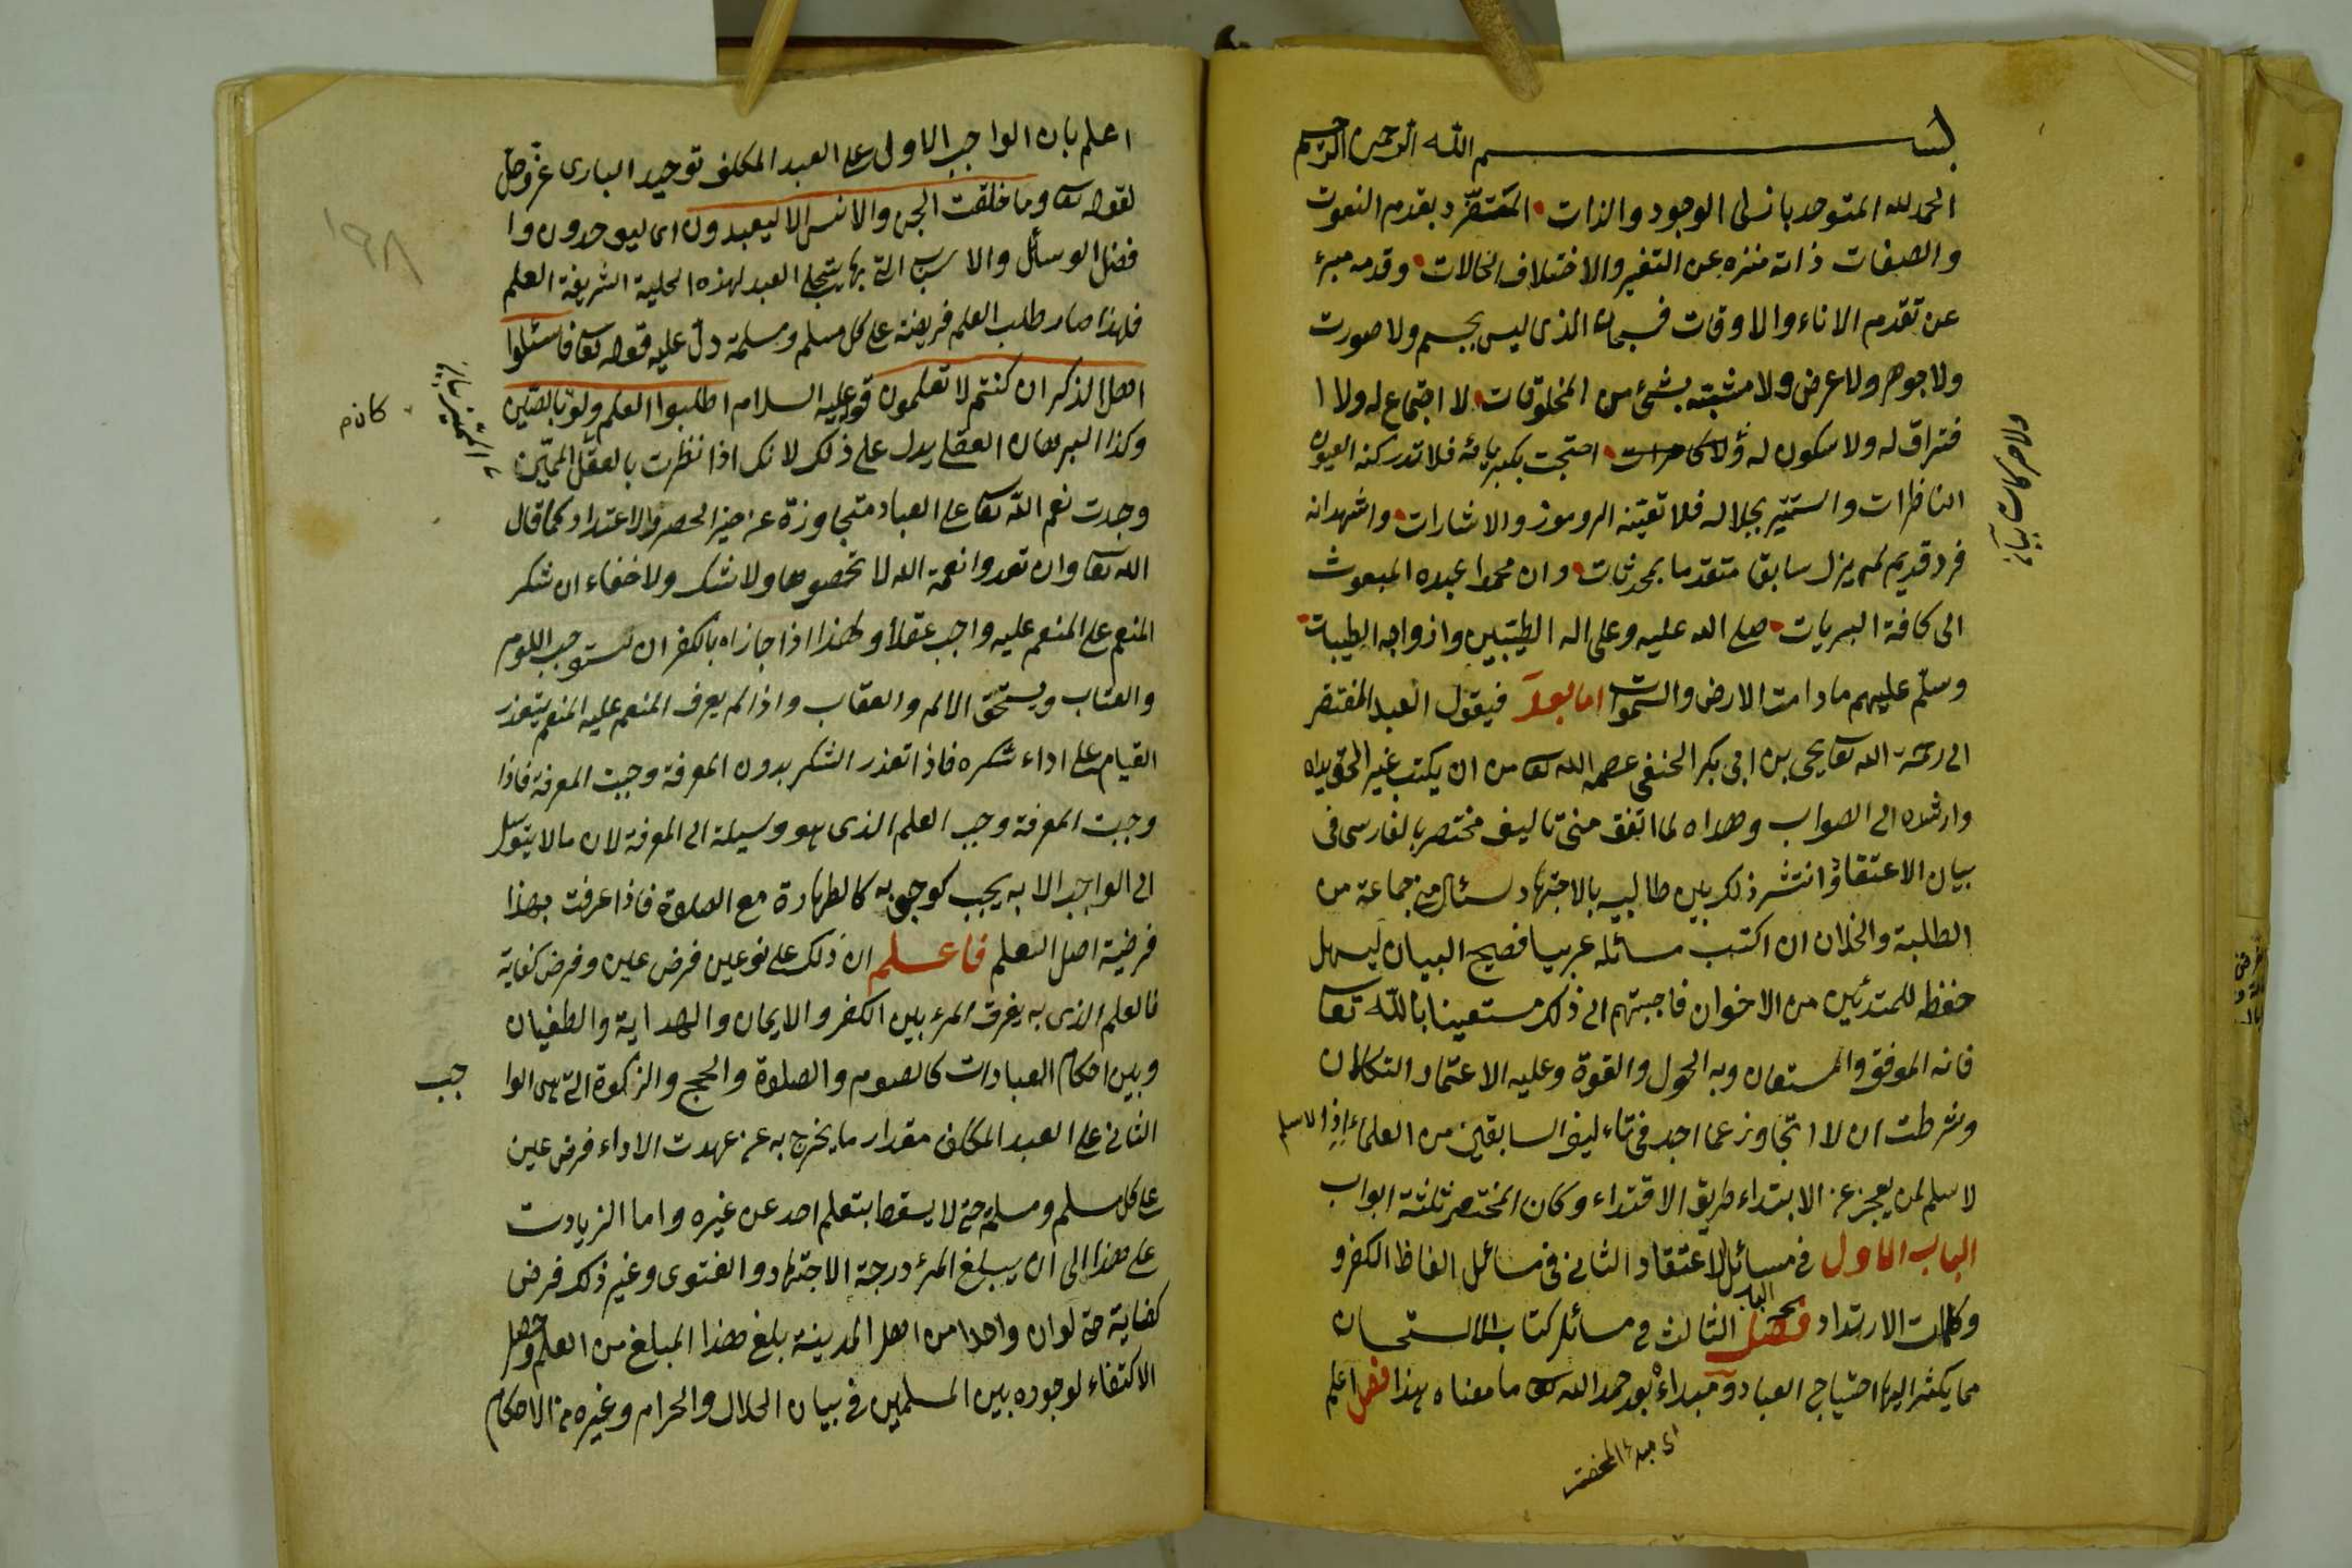 بسم الله الرحمن الرحيم
الحمد لله المتوحد بازلى الوجود والذات المتفرد بقدم النعوت
والصفات ذاته منزه عن التغير والاختلاف الحالات وقدمه مبرء
عن تقدم الاناء والاوقات فسبحان الذى ليس بجسم ولا صورت
ولا جوهر ولا عرض ولا مشبته بشئ من المخلوقات لا اجتماع له ولا ا
فتراق له ولا سكون له ولا احتجت بكبريائه فلا تدركنه العيون
الناظرات واستتير بجلاله فلا تعينه الرموز والاشارات واشهد انه
فرد قديم لم يزل سابقا متقدما بمحدثات وان محمدا عبده المبعوث
الى كافة البريات صلى الله عليه وعلى اله الطيبين وازواجه الطيبات
وسلم عليهم ما دامت الارض والسموات اما بعد فيقول العبد المفتقر
الى رحمة الله تعا يحيى بن ابى بكر الحنفى عصمه الله تعا من ان يكتب غير الحق يداه
وارشده الى الصواب وهداه لما اتفق منى تاليف مختصر بالفارسى فى
بيان الاعتقاد وانتشر ذلك بين طالبيه بالاجتهاد سئال منى جماعة من
الطلبة والخلان ان اكتب مسائله عربيا فصيح البيان ليسهل
حفظه للمتدئين من الاخوان فاجبتهم الى ذلك مستعينا بالله تعا
فانه الموفق والمستعان وبه الحول والقوة وعليه الاعتماد والتكلان
وشرطت ان لا اتجاوز عما اجد فى تاءليف السابقين من العلماء اذ الاسلم
لاسلم لمن يعجز عن الابتداء طريق الاقتداء وكان المختصر ثلثة ابواب
الباب الاول فى مسائل الاعتقاد الثانى فى مسائل الفاظ الكفر و
وكلمات الارتداد فصل الباب الثالث فى مسائل كتاب الاستحسان
مما يكثر اليها احتياج العباد ومبداءه بعد حمد الله تعا ما معناه هذا فصل اعلم
اى مبدء المختصر
اعلم بان الواجب الاولى على العبد المكلف توحيد البارى عز وجل
لقوله تعا وما خلقت الجن والانس الا ليعبدون اى ليوحدون وا
فضل الوسائل والاسباب التى بها يتحلى العبد لهذه الحلية الشريفة العلم
فلهذا صار طلب العلم فريضة على كل مسلم ومسلمة دل عليه قوله تعا فاسئلوا
اهل الذكر ان كنتم لا تعلمون قوله عليه السلام اطلبوا العلم ولو بالصين
وكذا البرهان العقلى يدل على ذلك لانك اذا نظرت بالعقل المميز
وجدت نعم الله تعا على العباد متجاوزة عن حيز الحصر والاعتداد كما قال
الله تعا وان تعدوا نعمة الله لا تحصوها ولا شك ولا خفاء ان شكر
المنعم على المنعم عليه واجب عقلا ولهذا اذا جازاه بالكفران يستوجب اللوم
والعتاب ويستحق الالم والعقاب واذا لم يعرف المنعم عليه المنعم يتعذر
القيام على اداء شكره فاذا تعذر الشكر بدون المعرفة وجبت المعرفة فاذا
وجبت المعرفة وجب العلم الذى هو وسيلة الى المعرفة لان ما لا يتوسل
الى الواجب الا به يجب كوجوبه كالطهارة مع الصلوة فاذا عرفت بهذا
فرضية اصل التعلم فاعلم ان ذلك على نوعين فرض عين وفرض كفاية
فالعلم الذى به يفرق المرء بين الكفر والايمان والهداية والطغيان
وبين احكام العبادات كالصوم والصلوة والحج والزكوة التى هى الوا
جب
الثانى على العبد المكلف مقدار ما يخرج به عن عهدت الاداء فرض عين
على كل مسلم ومسلمة حتى لا يسقط بتعلم احد عن غيره واما الزيادت
على هذا الى ان يبلغ المرء درجة الاجتهاد والفتوى وغير ذلك فرض
كفاية حتى لو ان واحدا من اهل المدينة بلغ هذا المبلغ من العلم وحصل
الاكتفاء لوجوده بين المسلمين فى بيان الحلال والحرام وغيره من الاحكام